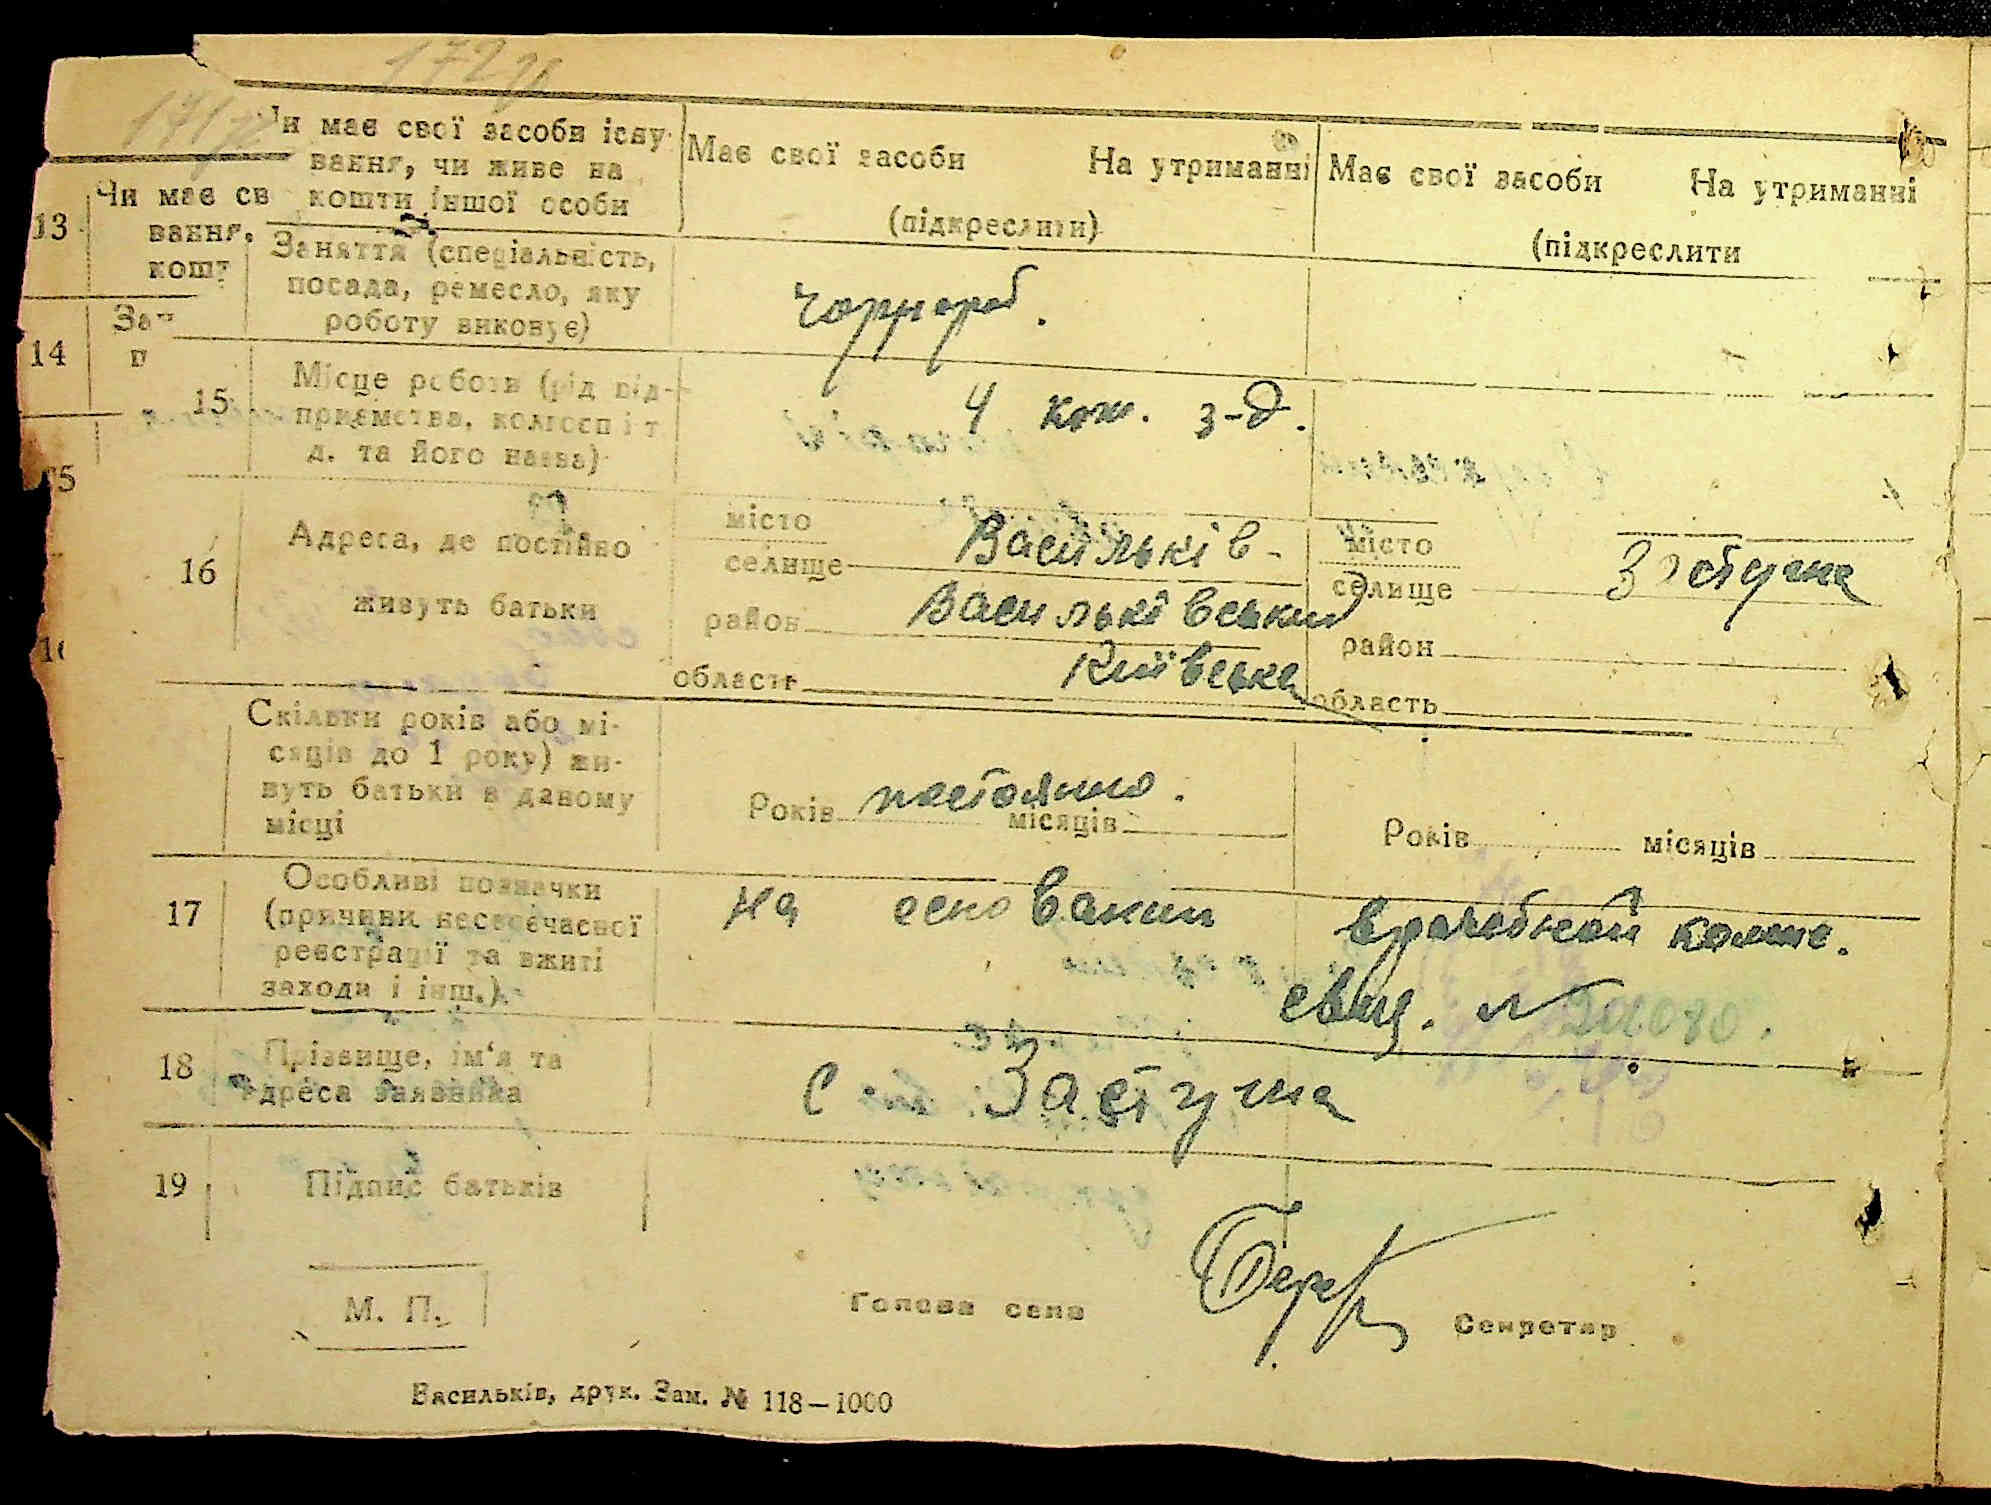 172
171
Чи має свої засоби існу-
вання, чи живе на
кошти іншої особи
Має свої засоби На утриманні
(підкреслити)
Має свої засоби На утриманні
(підкреслити
13 Чи має св
вання,
кошт
Заняття (спеціальність,
посада, ремесло, яку
роботу виконує)
чорнороб.
14
15 Місце роботи (рід під-
приємства, колгосп і т
д. та його назва)
4 кож. з-д.
16 Адреса, де постійно
живуть батьки
місто
селище Васильків
район Васильківський
область Київська
місто
селище Застугна
район
область
Скільки років або мі-
сяців до 1 року) жи-
вуть батьки в даному
місці
Років постоянно. місяців
Років місяців
17 Особливі позначки
(причини несвоєчасної
реєстрації та вжиті
заходи і інш.)
На основании врачебной комис.
свид. №
18 Прізвище, ім'я та
адреса заявника
с Застугна
19 Підпис батьків
М. П.
Голова села
Секретар
Васильків, друк. Зам. № 118—1000